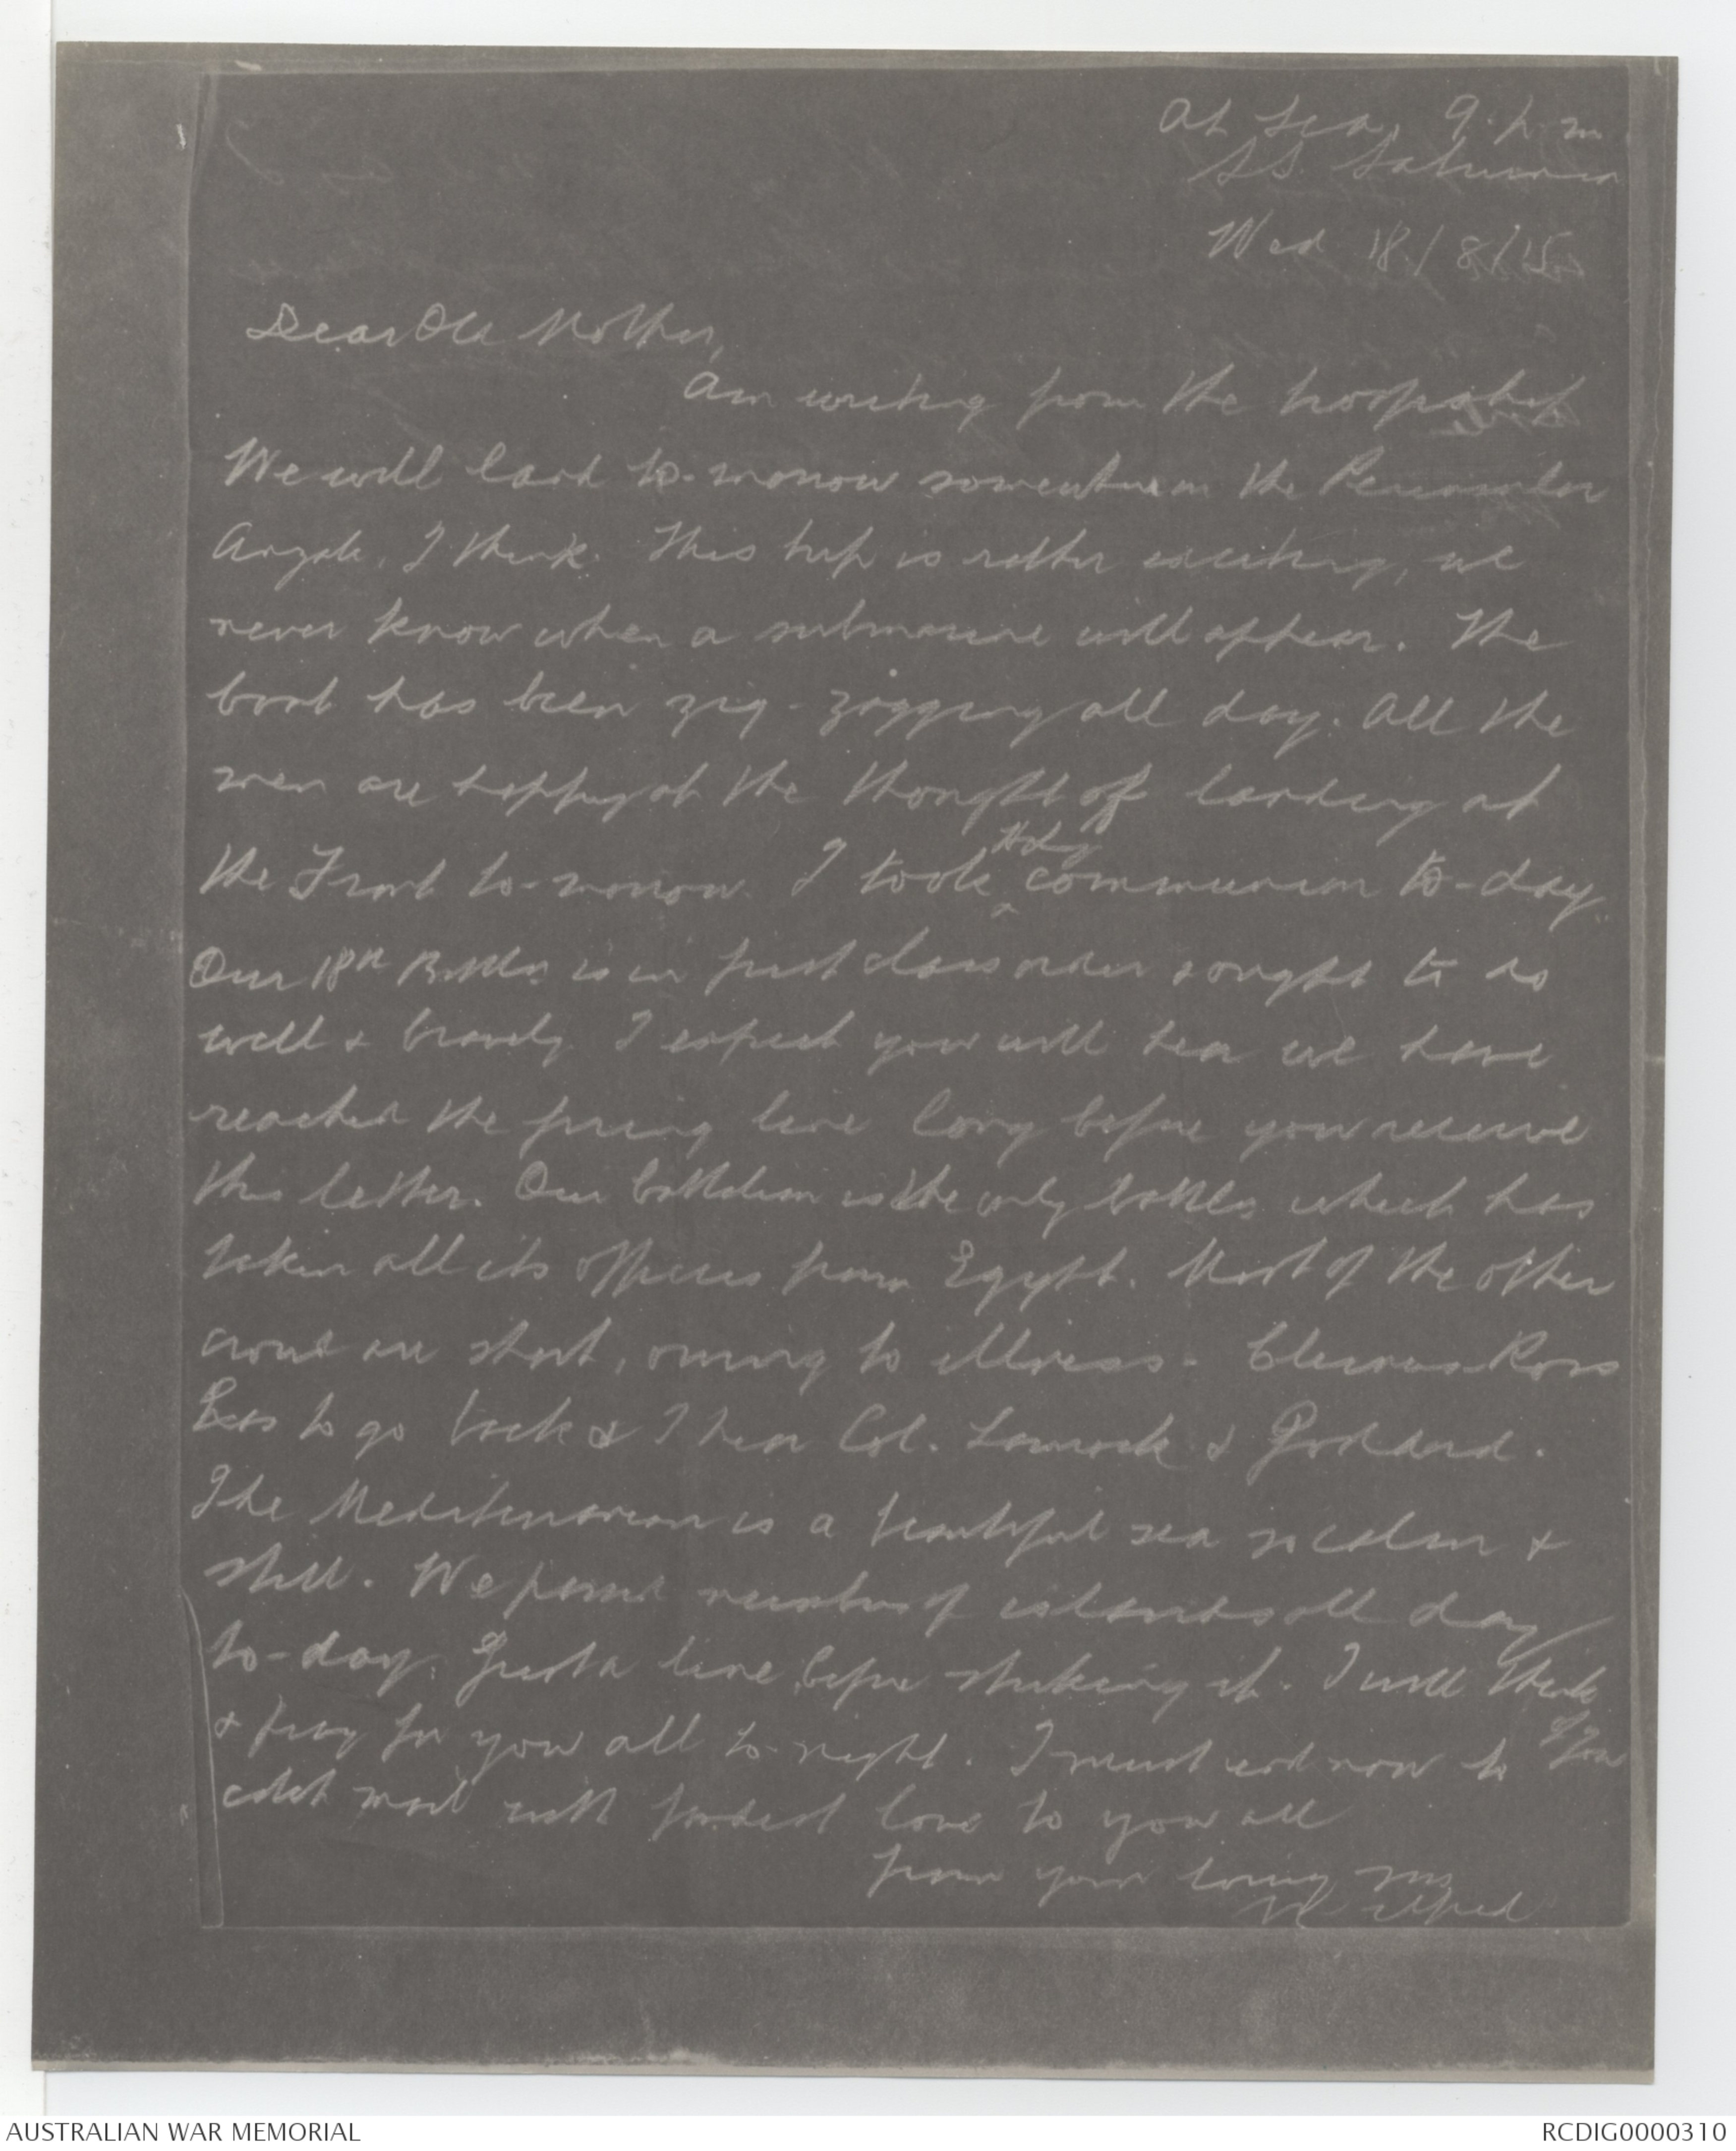 At Sea, 9. p.m.
S.S. Saturnia
Wed 18/8/15
Dear Old Mother,
Am writing from the troopship
We will land to-morrow somewhere on the Peninsular
Anzac, I think. This trip is rather exciting, we
never know when a submarine will appear. The
boat has been zig-zagging all day. All the
men are happy at the thought of landing at
the Front to-morrow. I took Holy communion to-day.
Our 18th Battln is in first class order & ought to do
well & bravely. I expect you will hear we have
reached the firing line long before you receive
this letter. Our battalion is the only battln which has
taken all its officers from Egypt. Most of the other
crowd are short, owing to illness. Ross
has to go back & I hear Col. Lamrock & Goddard.
The Mediterranean is a beautiful sea so calm &
still. We passed numbers of islands all day
to-day. Just a line before striking it. I will think of you
& pray for you all to-night. I must end now to
catch mail with fondest love to you all
from your loving son
Wilfred
AUSTRALIAN WAR MEMORIAL
RCDIG0000310